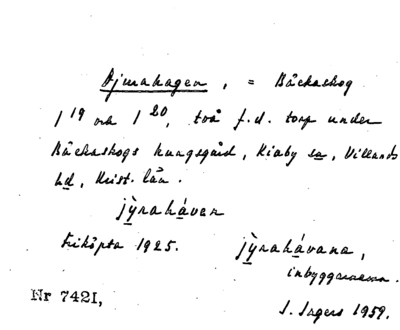 Djurahagen, = Bäckaskog
1¹⁹ och 1²⁰, två f.d. torp under
Bäckaskogs kungsgård, Kiaby sn, Villands
hd, Krist. län.
jỳrahá̱van
friköpta 1925. jỳrahávana,
inbyggarna.
J. Sagers 1959.
Nr 7421,